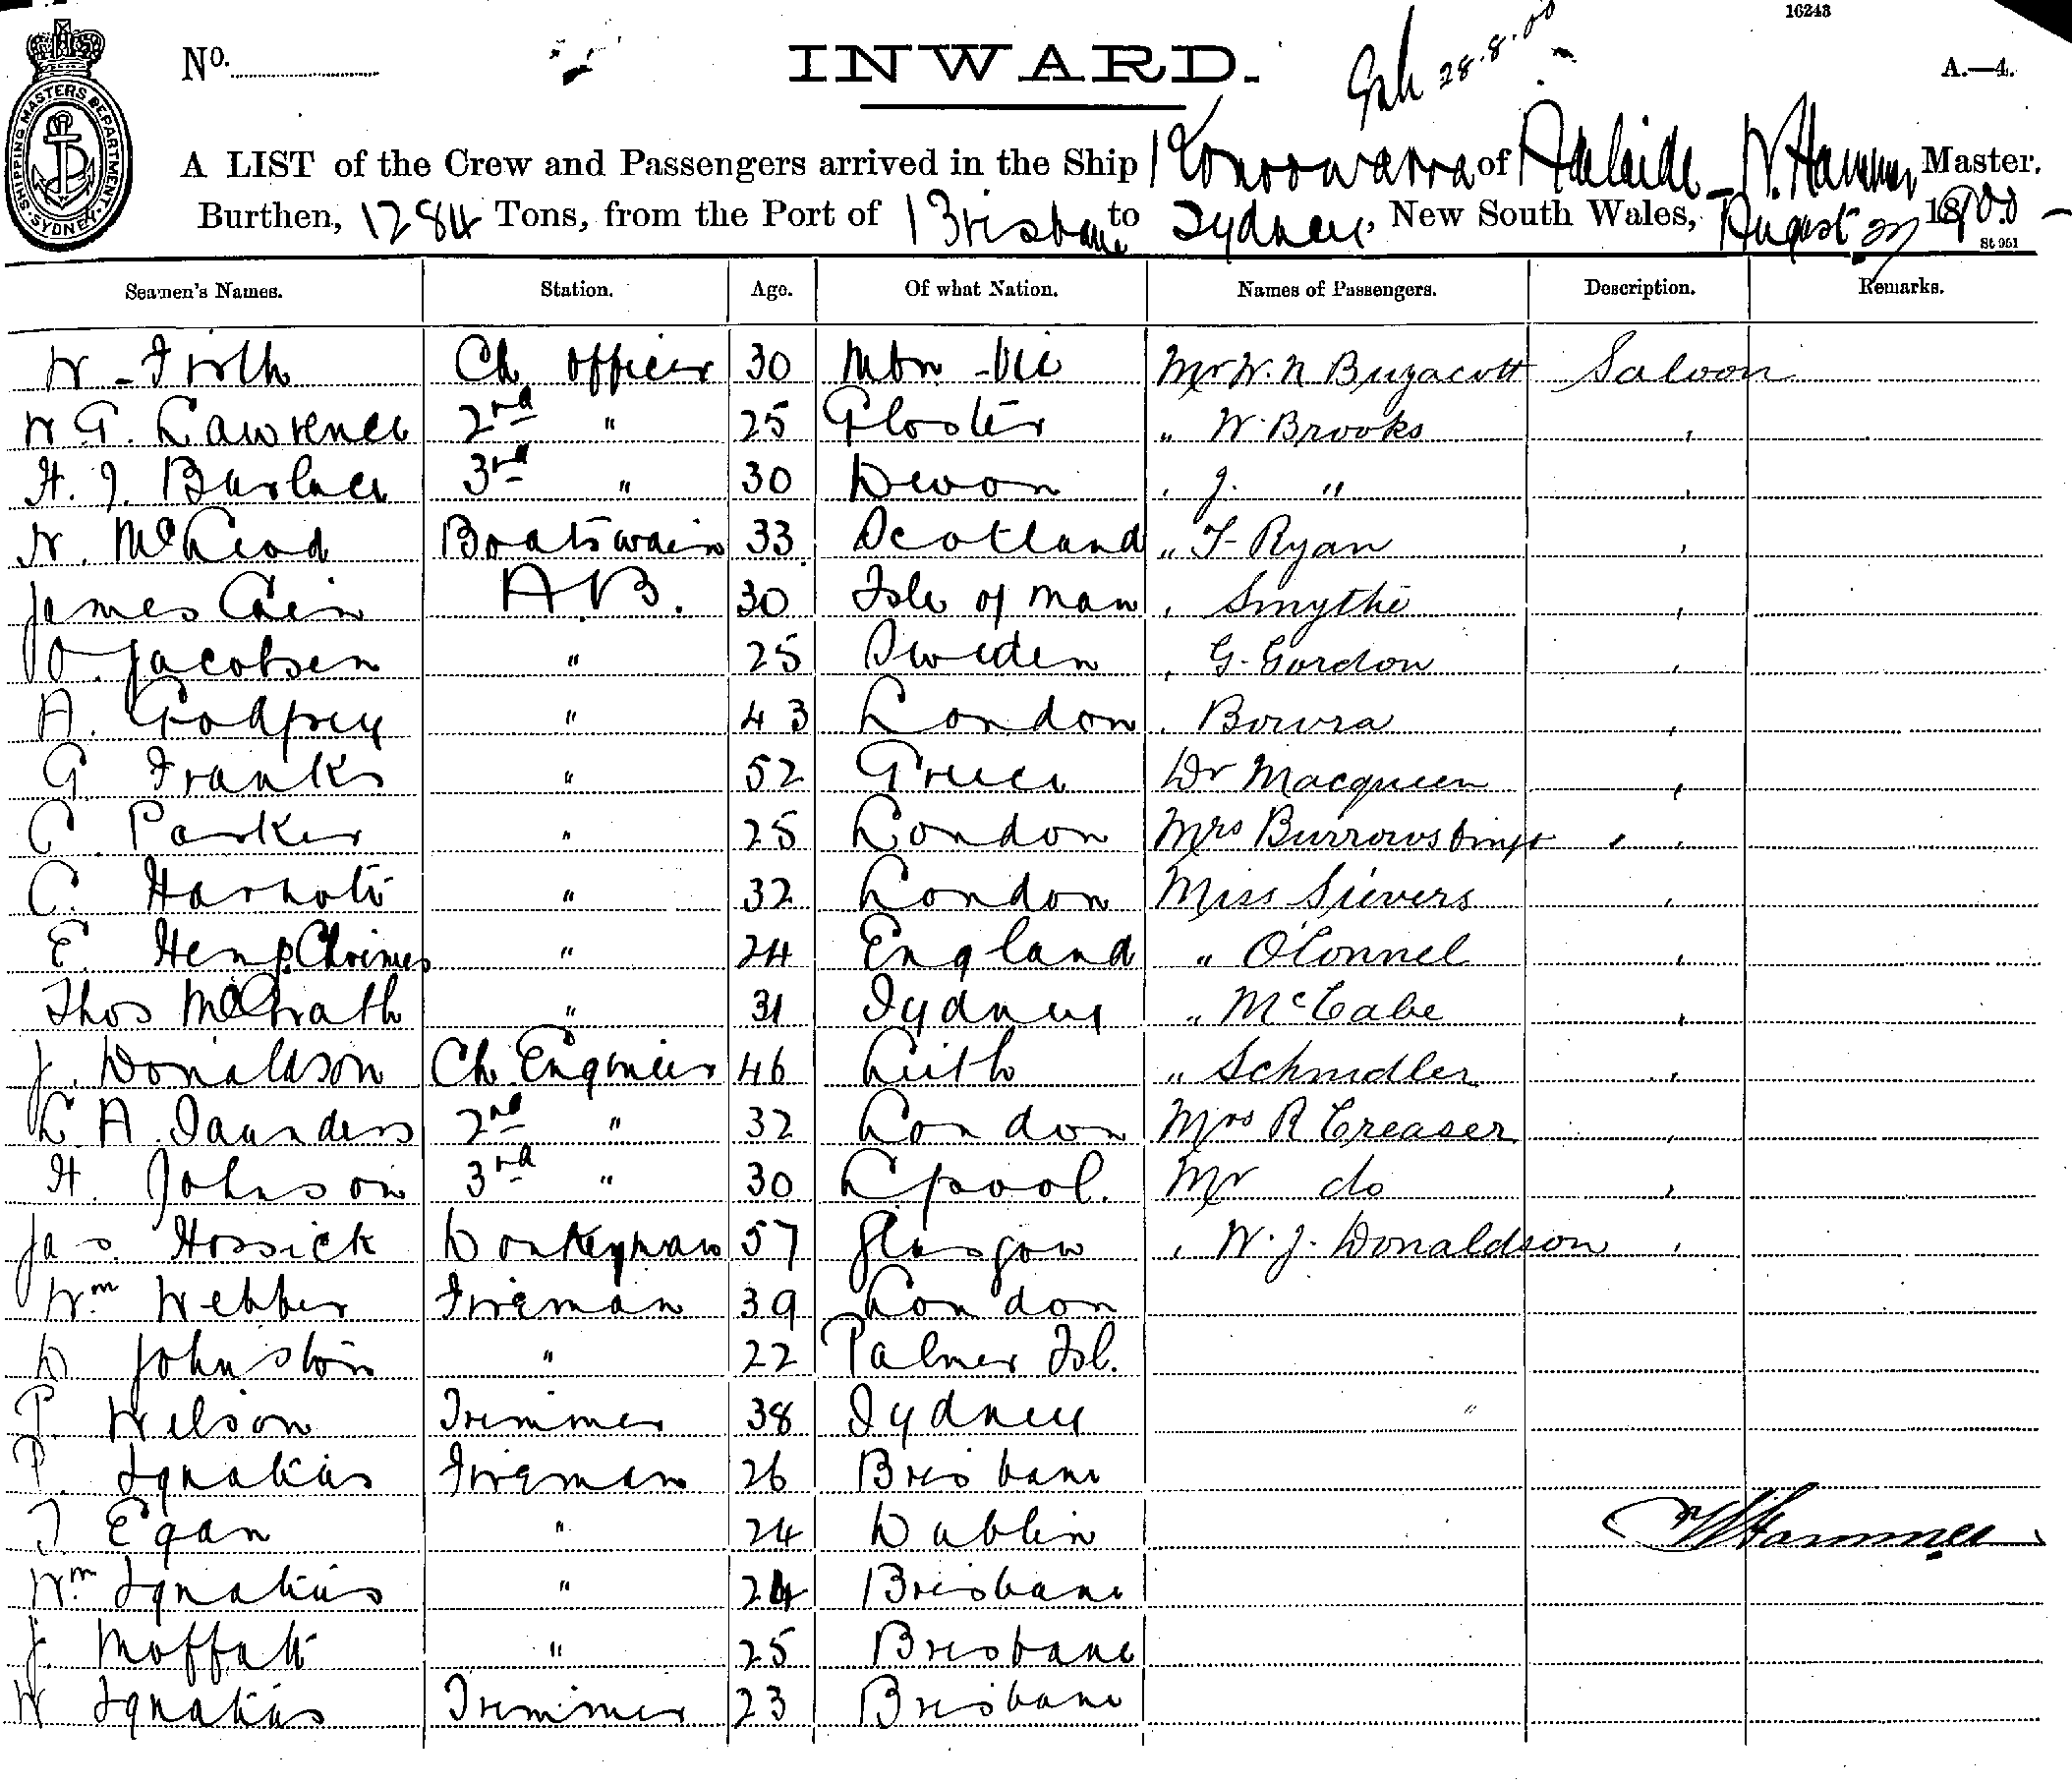 16243
No. INWARD. 28.8.00 A.—4.
SHIPPING MASTERS DEPARTMENT. SYDNEY
A LIST of the Crew and Passengers arrived in the Ship Konoowarra of Adelaide W. Hammer Master,
Burthen, 1284 Tons, from the Port of Brisbane to Sydney, New South Wales, August 27 1900
St 951
Seamen's Names. Station. Age. Of what Nation. Names of Passengers. Description. Remarks.
W. Firth Ch officer 30 Mbn Vic Mr W. N Buzacott Saloon
W G. Lawrence 2nd " 25 Gloster " W. Brooks "
H. J. Barlace 3rd " 30 Devon " J. " "
N. McLeod Boatswain 33 Scotland " T Ryan "
James Cain A.B. 30 Isle of Man " Smythe "
O. Jacobsen " 25 Sweden " G. Gordon "
A. Godfrey " 43 London " Bowra "
G. Franks " 52 Greece Dr Macqueen "
C. Parker " 25 London Mrs Burrows & inft " "
C. " 32 London Miss Sievers "
E. Hemp " 24 England " O'Connel "
Thos McGrath " 31 Sydney " McCabe "
J. Donaldson Ch Engineer 46 Leith " Schmidler "
L. A. Saunders 2nd " 32 London Mrs R Creaser "
H. Johnson 3rd " 30 Lpool. Mr do "
Jas. Hossick Donkeyman 57 Glasgow " W. J. Donaldson "
Wm Webber Fireman 39 London
D Johnston " 22 Palmer Isl.
P. Wilson Trimmer 38 Sydney "
P. Ignatius Fireman 26 Brisbane
T Egan " 24 Dublin W Hammer
Wm Ignatius " 24 Brisbane
J. Moffatt " 25 Brisbane
W Ignatius Trimmer 23 Brisbane